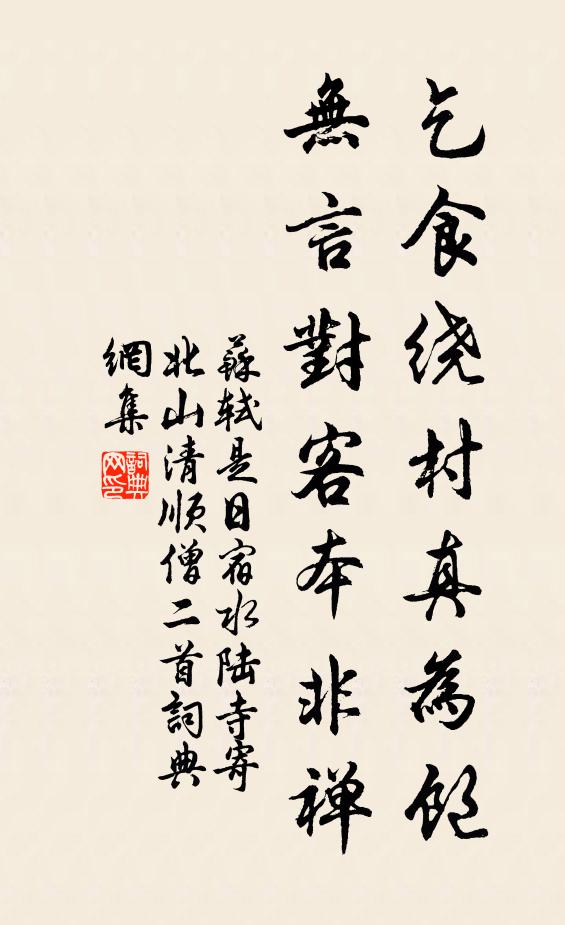 乞食绕村真為飽
無言對客本非禅
蘇軾是日宿水陆寺寄
北山清順僧二首詞典
網集
詞典
网印